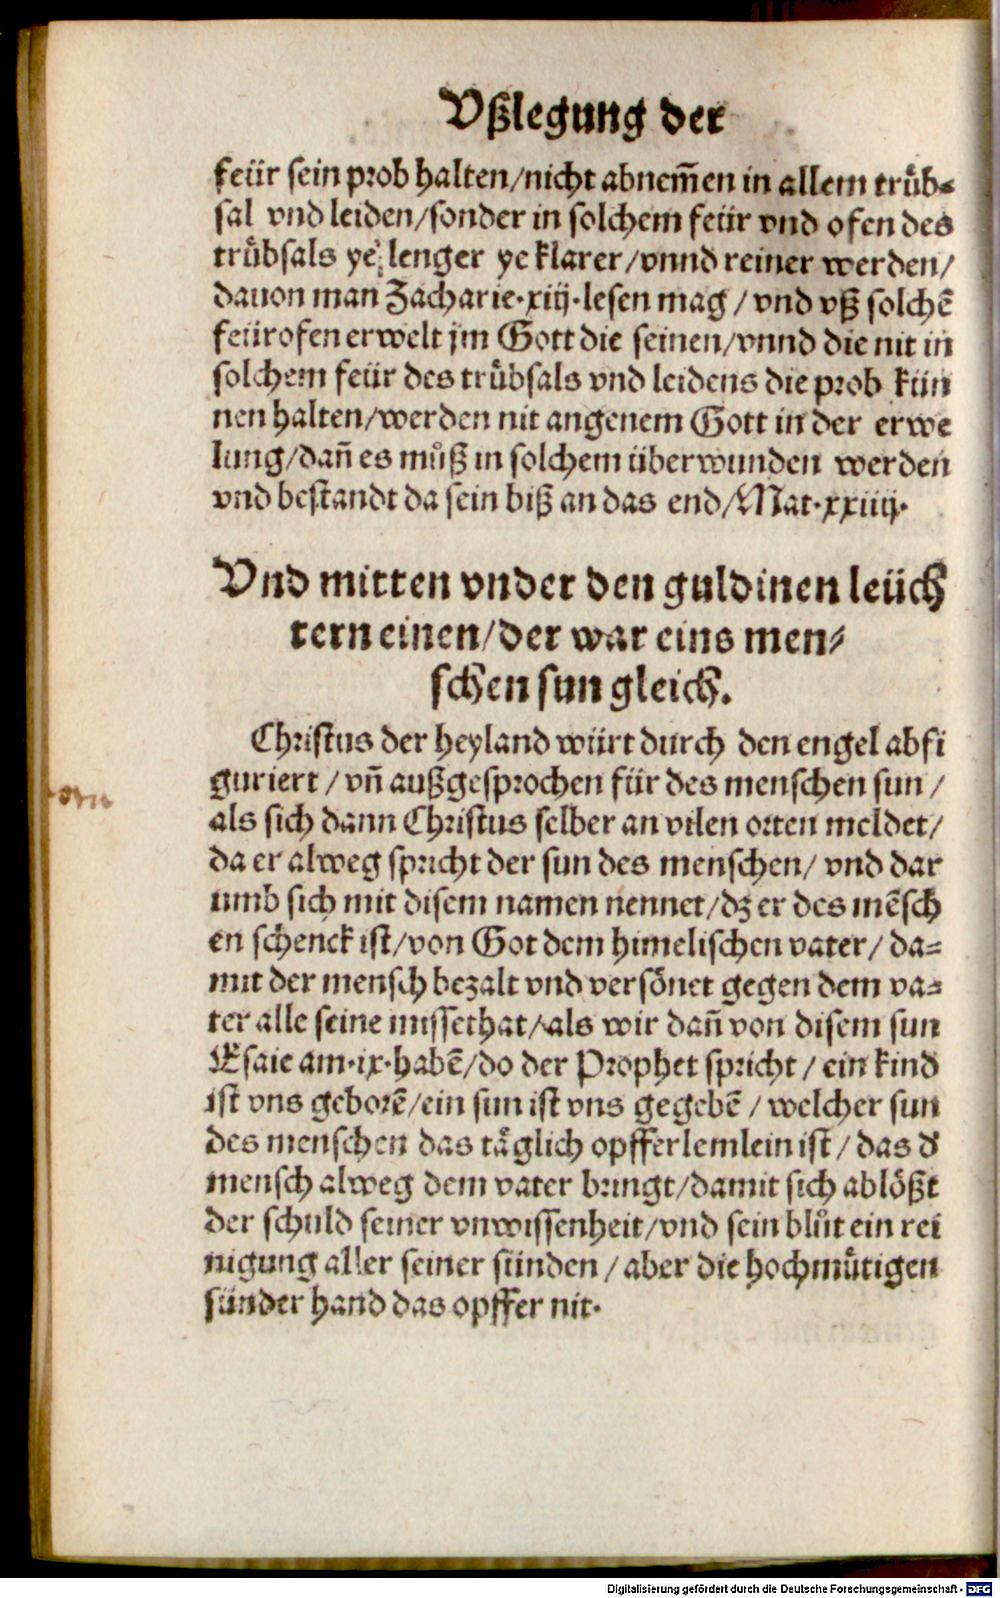 Vßlegung der
feür sein prob halten/nicht abnem̃en in allem trüb⸗
sal vnd leiden/sonder in solchem feür vnd ofen des
trübsals ye lenger ye klarer/vnnd reiner werden/
dauon man Zacharie.xiij.lesen mag/vnd vß solchẽ
feürofen erwelt jm Gott die seinen/vnnd die nit in
solchem feür des trübsals vnd leidens die prob kün
nen halten/werden nit angenem Gott in der erwe
lung/dañ es můß in solchem überwunden werden
vnd bestandt da sein biß an das end/Mat.xxiiij.
Vnd mitten vnder den guldinen leüch
tern einen/der war eins men⸗
schen sun gleich.
Christus der heyland würt durch den engel abfi
guriert/vñ außgesprochen für des menschen sun/
als sich dann Christus selber an vilen orten meldet/
da er alweg spricht der sun des menschen/vnd dar
umb sich mit disem namen nennet/dz er des mẽsch
en schenck ist/von Got dem himelischen vater/da⸗
mit der mensch bezalt vnd versönet gegen dem va⸗
ter alle seine missethat/als wir dañ von disem sun
Esaie am.ix.habẽ/do der Prophet spricht/ein kind
ist vns geborẽ/ein sun ist vns gegebẽ/welcher sun
des menschen das täglich opfferlemlein ist/das d'
mensch alweg dem vater bringt/damit sich ablößt
der schuld seiner vnwissenheit/vnd sein blůt ein rei
nigung aller seiner sünden/aber die hochmütigen
sünder hand das opffer nit.
Digitalisierung gefördert durch die Deutsche Forschungsgemeinschaft - DFG